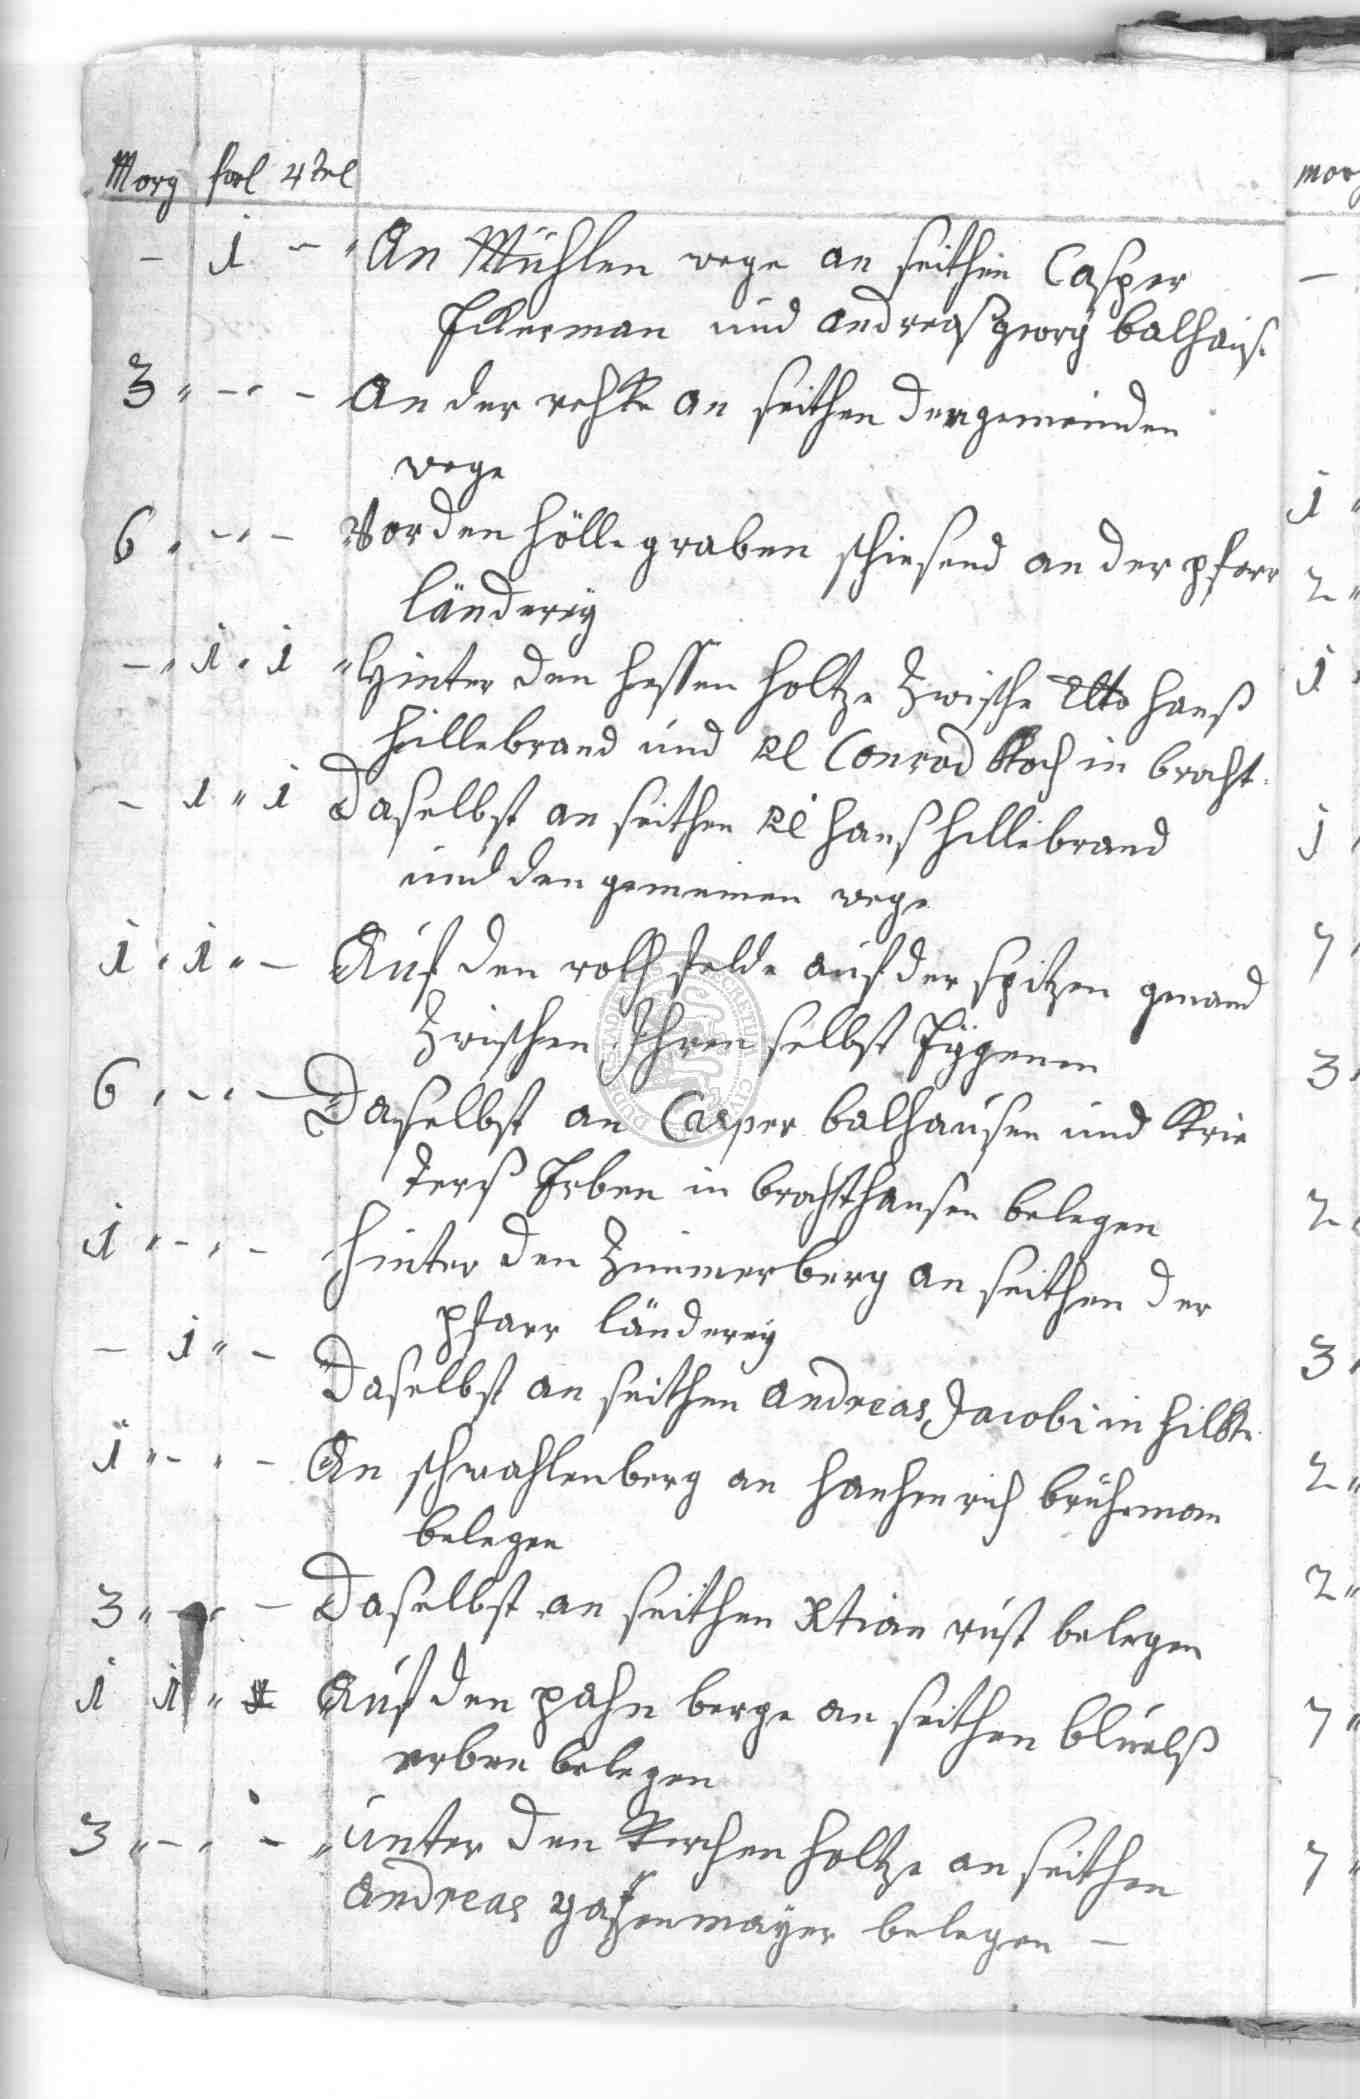 Morg forl 4tel
- 1 - An Mühlen wege an seithen Casper
Ickerman und Andreaß georg balhauß.
3 " - " - An der rehke an seithen der gemeinden
wege
6 " - " - Vor den hölle graben schiesend an der pfarr
länderey
- " 1 " 1 " Hinter den hessen holtze Zwische Elto hanß
hillebrand und El Conrad Koch in bracht.
- 1 " 1 Daselbst an seithen El hanß hillebrand
und den gemeinen wege
1 " 1 " - Auf den roth felde auf der spitzen gewand
Zwischen Ihren selbst Eigenen
6 " - " - Daselbst an Casper balhausen und Krie
terß Erben in brochthausen belegen
1 " - " - hinter den Zimmerberg an seithen der
pfarr länderey
- 1 " - Daselbst an seithen Andreas Jacobi in hilk.
1 " - " - An schwahlenberg an hanhenrich brühman
belegen
3 " - " - Daselbst an seithen Xtian rust belegen
1 1 " Auf den pahn berge an seithen bluelß
erben belegen
3 " - " - " unter den Kirchen holtze an seithen
Andreas belegen -